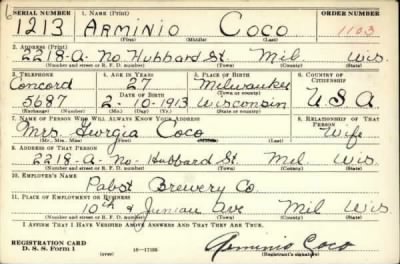 SERIAL NUMBER 1. NAME (Print) ORDER NUMBER
1213 ARMINIO COCO 1103
(First) (Middle) (Last)
2. ADDRESS (Print)
2218-A- No. Hubbard St. Mil Wis.
(Number and street or R. F. D. number) (Town) (County) (State)
3. TELEPHONE 4. AGE IN YEARS 5. PLACE OF BIRTH 6. COUNTRY OF CITIZENSHIP
Concord 27 Milwaukee
DATE OF BIRTH (Town or county)
5687 2-10-1913 Wisconsin U.S.A
(Exchange) (Number) (Mo.) (Day) (Yr.) (State or country)
7. NAME OF PERSON WHO WILL ALWAYS KNOW YOUR ADDRESS 8. RELATIONSHIP OF THAT PERSON
Mrs. Georgia Coco Wife
(Mr., Mrs., Miss) (First) (Middle) (Last)
9. ADDRESS OF THAT PERSON
2218-A- No- Hubbard St. Mil Wis.
(Number and street or R. F. D. number) (Town) (County) (State)
10. EMPLOYER'S NAME
Pabst Brewery Co.
11. PLACE OF EMPLOYMENT OR BUSINESS
10th & Juneau Ave Mil Wis
(Number and street or R. F. D. number) (Town) (County) (State)
I AFFIRM THAT I HAVE VERIFIED ABOVE ANSWERS AND THAT THEY ARE TRUE.
REGISTRATION CARD
D. S. S. Form 1 (over) 16-17105 Arminio Coco
(Registrant's signature)